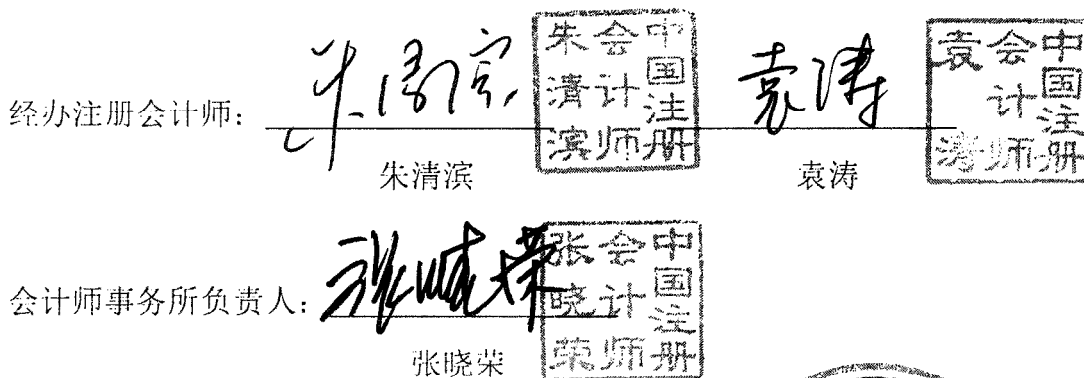 经办注册会计师： 朱清滨 中国注册会计师朱清滨 袁涛 中国注册会计师袁涛
朱清滨 袁涛
会计师事务所负责人： 张晓荣 中国注册会计师张晓荣
张晓荣